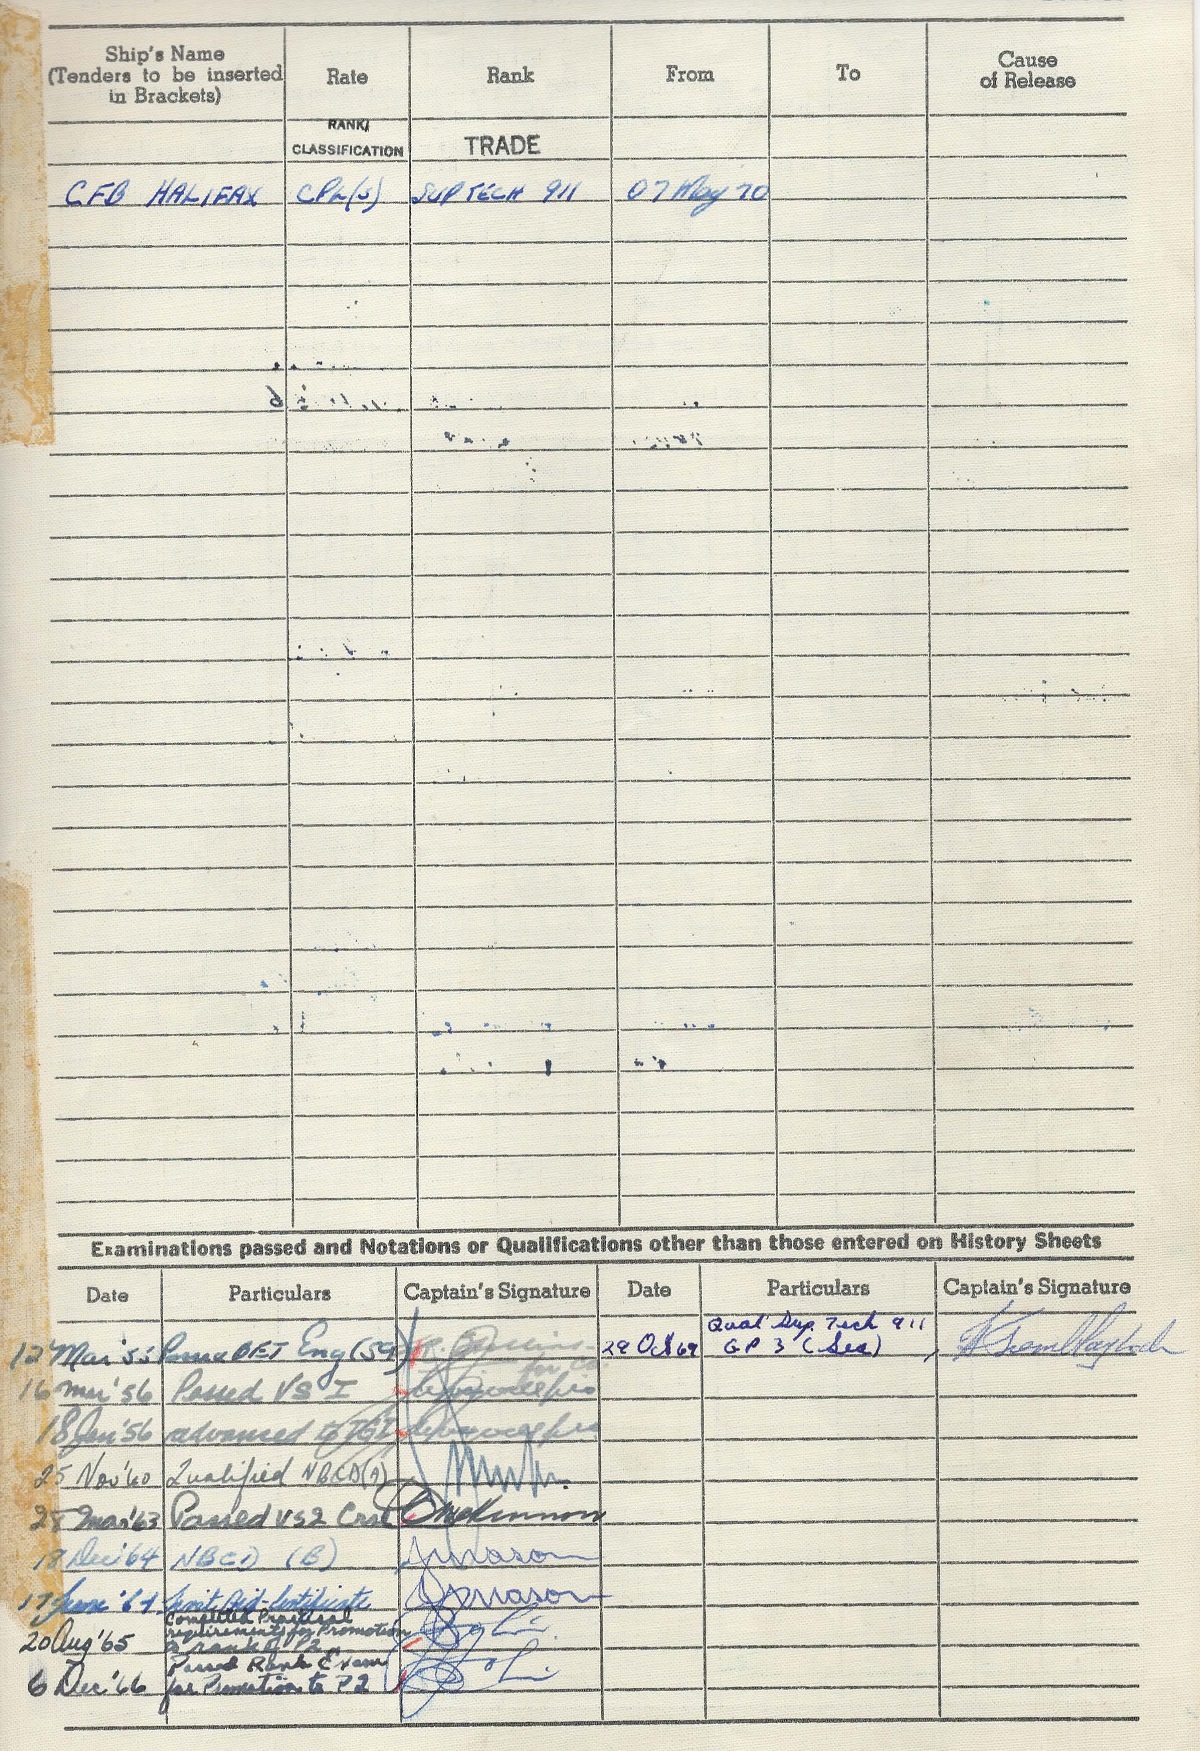 Ship's Name (Tenders to be inserted in Brackets) Rate Rank From To Cause of Release
RANK/ CLASSIFICATION TRADE
CFB HALIFAX CPL(S) SUPTECH 911 07 May 70
Examinations passed and Notations or Qualifications other than those entered on History Sheets
Date Particulars Captain's Signature Date Particulars Captain's Signature
12 Mar '55 Eng 29 Oct 69 Qual Sup Tech 911 GP 3 (Sea)
16 Mar '56 Passed VS I
18 Jan '56 advanced to
25 Nov '60 Qualified NBCD(A)
28 Mar '63 Passed VS2 Crse
18 Dec '64 NBCD (B)
17 June '64 Aid Certificate
20 Aug '65 Completed Practical requirements for Promotion to rank of P2
6 Dec '66 Passed Rank Exam for Promotion to P2